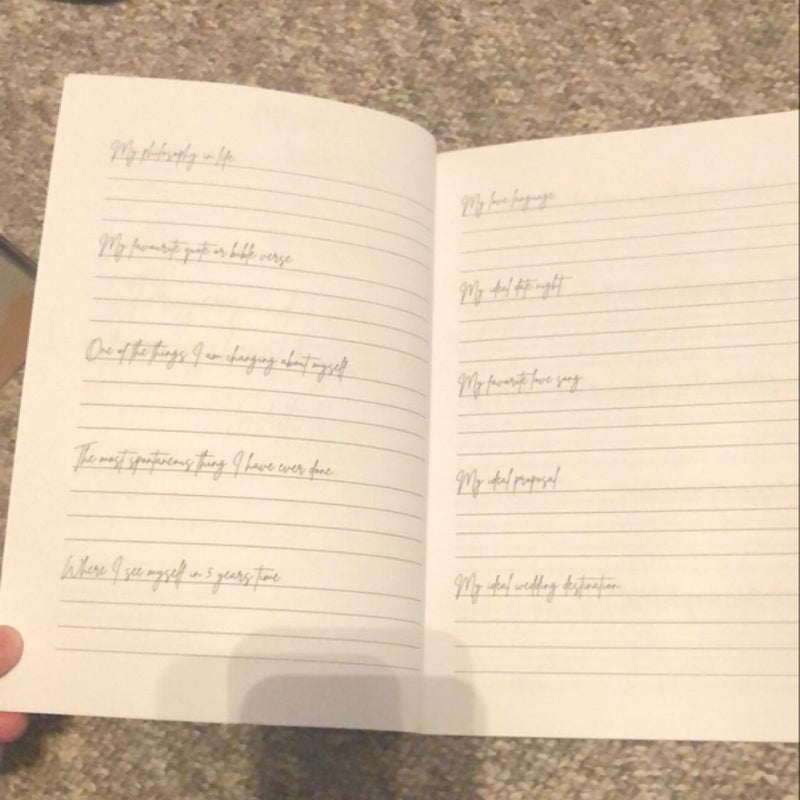 My philosophy in life
My favourite quote or bible verse
One of the things I am changing about myself
The most spontaneous thing I have ever done
Where I see myself in 5 years time
My love language
My ideal date night
My favorite love song
My ideal proposal
My ideal wedding destination